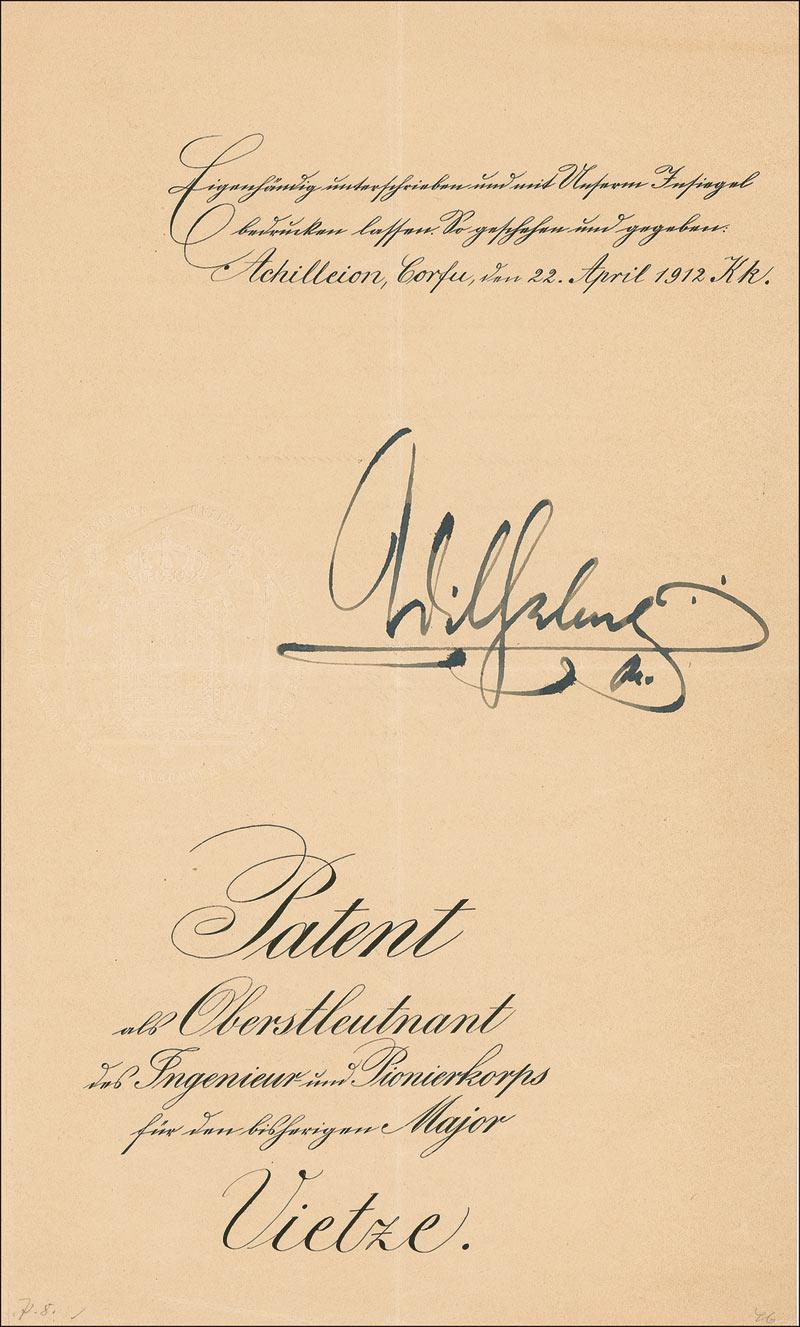 Eigenhändig unterschrieben und mit Unserm Insiegel
bedrucken lassen. So geschehen und gegeben:
Achilleion, Corfu, den 22. April 1912 Kk.
Wilhelm
R.
Patent
als Oberstleutnant
des Ingenieur und Pionierkorps
für den bisherigen Major
Vietze.